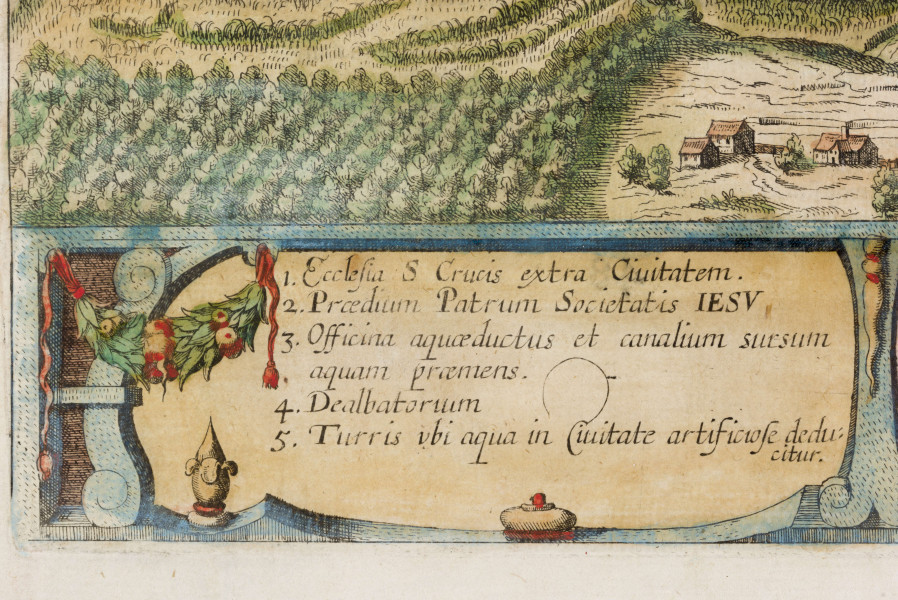 1. Ecclesia S Crucis extra Ciuitatem.
2. Prædium Patrum Societatis IESV
3. Officina aquæductus et canalium sursum
aquam præmens.
4. Dealbatorium
5. Turris vbi aqua in Ciuitate artificiose dedu:
citur.